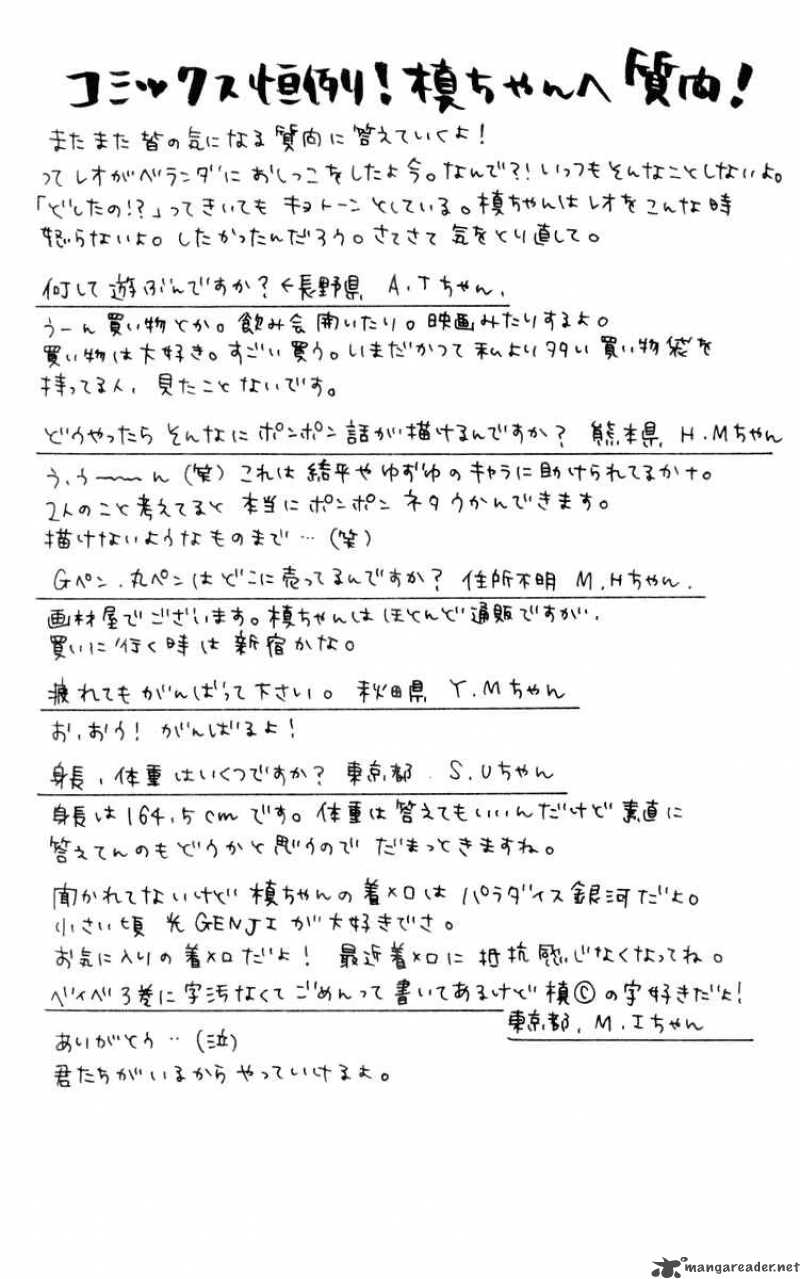 コミックス恒例!槙ちゃんへ質問!
またまた皆の気になる質問に答えていくよ!
ってレオがベランダにおしっこをしたよ今。なんで?!いつもそんなことしないよ。
「どしたの!?」ってきいてもキョトーンとしている。槙ちゃんはレオをこんな時
怒らないよ。したかったんだろう。さてさて気をとり直して。
何して遊ぶんですか?←長野県 A.Tちゃん.
うーん買い物とか。飲み会開いたり。映画みたりするよ。
買い物は大好き。すごい買う。いまだかつて私より多い買い物袋を
持ってる人、見たことないです。
どうやったらそんなにポンポン話が描けるんですか? 熊本県 H.Mちゃん
う、う〜〜ん(笑)これは綺平やゆずゆのキャラに助けられてるかナ。
2人のこと考えてると本当にポンポンネタうかんできます。
描けないようなものまで…(笑)
Gペン、丸ペンはどこに売ってるんですか? 住所不明 M.Hちゃん.
画材屋でございます。槙ちゃんはほとんど通販ですが、
買いに行く時は新宿かな。
疲れてもがんばって下さい。 秋田県 Y.Mちゃん
お、おう!がんばるよ!
身長、体重はいくつですか? 東京都. S.Uちゃん
身長は164.5cmです。体重は答えてもいいんだけど素直に
答えてんのもどうかと思うのでだまっときますね。
聞かれてないけど槙ちゃんの着メロはパラダイス銀河だよ。
小さい頃 光GENJIが大好きでさ。
お気に入りの着メロだよ! 最近着メロに抵抗感じなくなってね。
ベイベ3巻に字汚なくてごめんって書いてあるけど槙©の字好きだよ!
東京都. M.Iちゃん
ありがとう…(泣)
君たちがいるからやっていけるよ。
mangareader.net